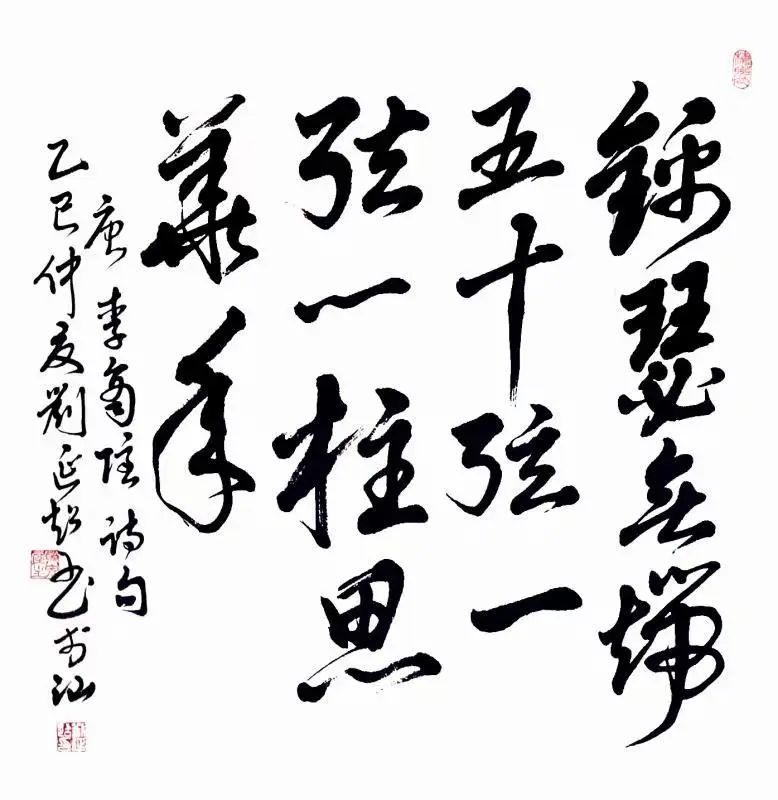 錦瑟無端
五十弦一
弦一柱思
華年
唐李商隐诗句
乙巳仲夏劉延超书於汕